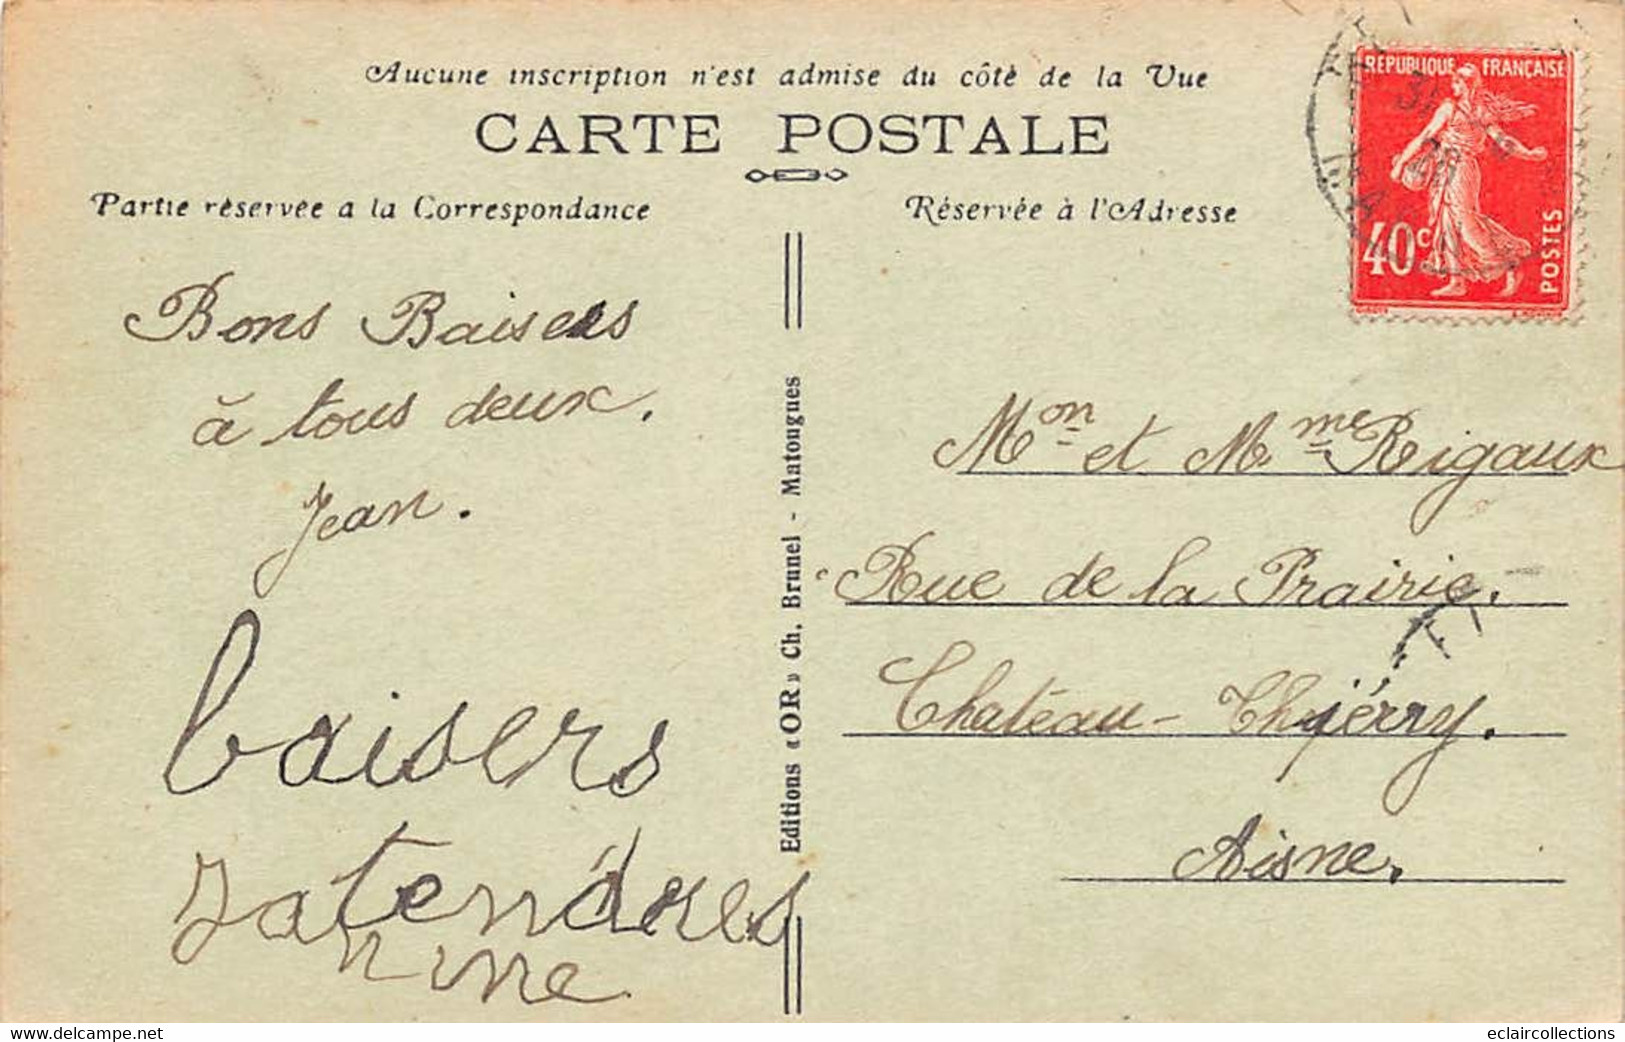 Aucune inscription n'est admise du côté de la Vue
CARTE POSTALE
Partie réservée a la Correspondance
Réservée à l'Adresse
REPUBLIQUE FRANÇAISE
40c
POSTES
Bons Baisers
à tous deux.
Jean.
baisers
tendres
Janine
Editions « OR » Ch. Brunel - Matougues
Mon et Mme Rigaux
Rue de la Prairie.
Chateau-Thierry.
Aisne.
www.delcampe.net
eclaircollections